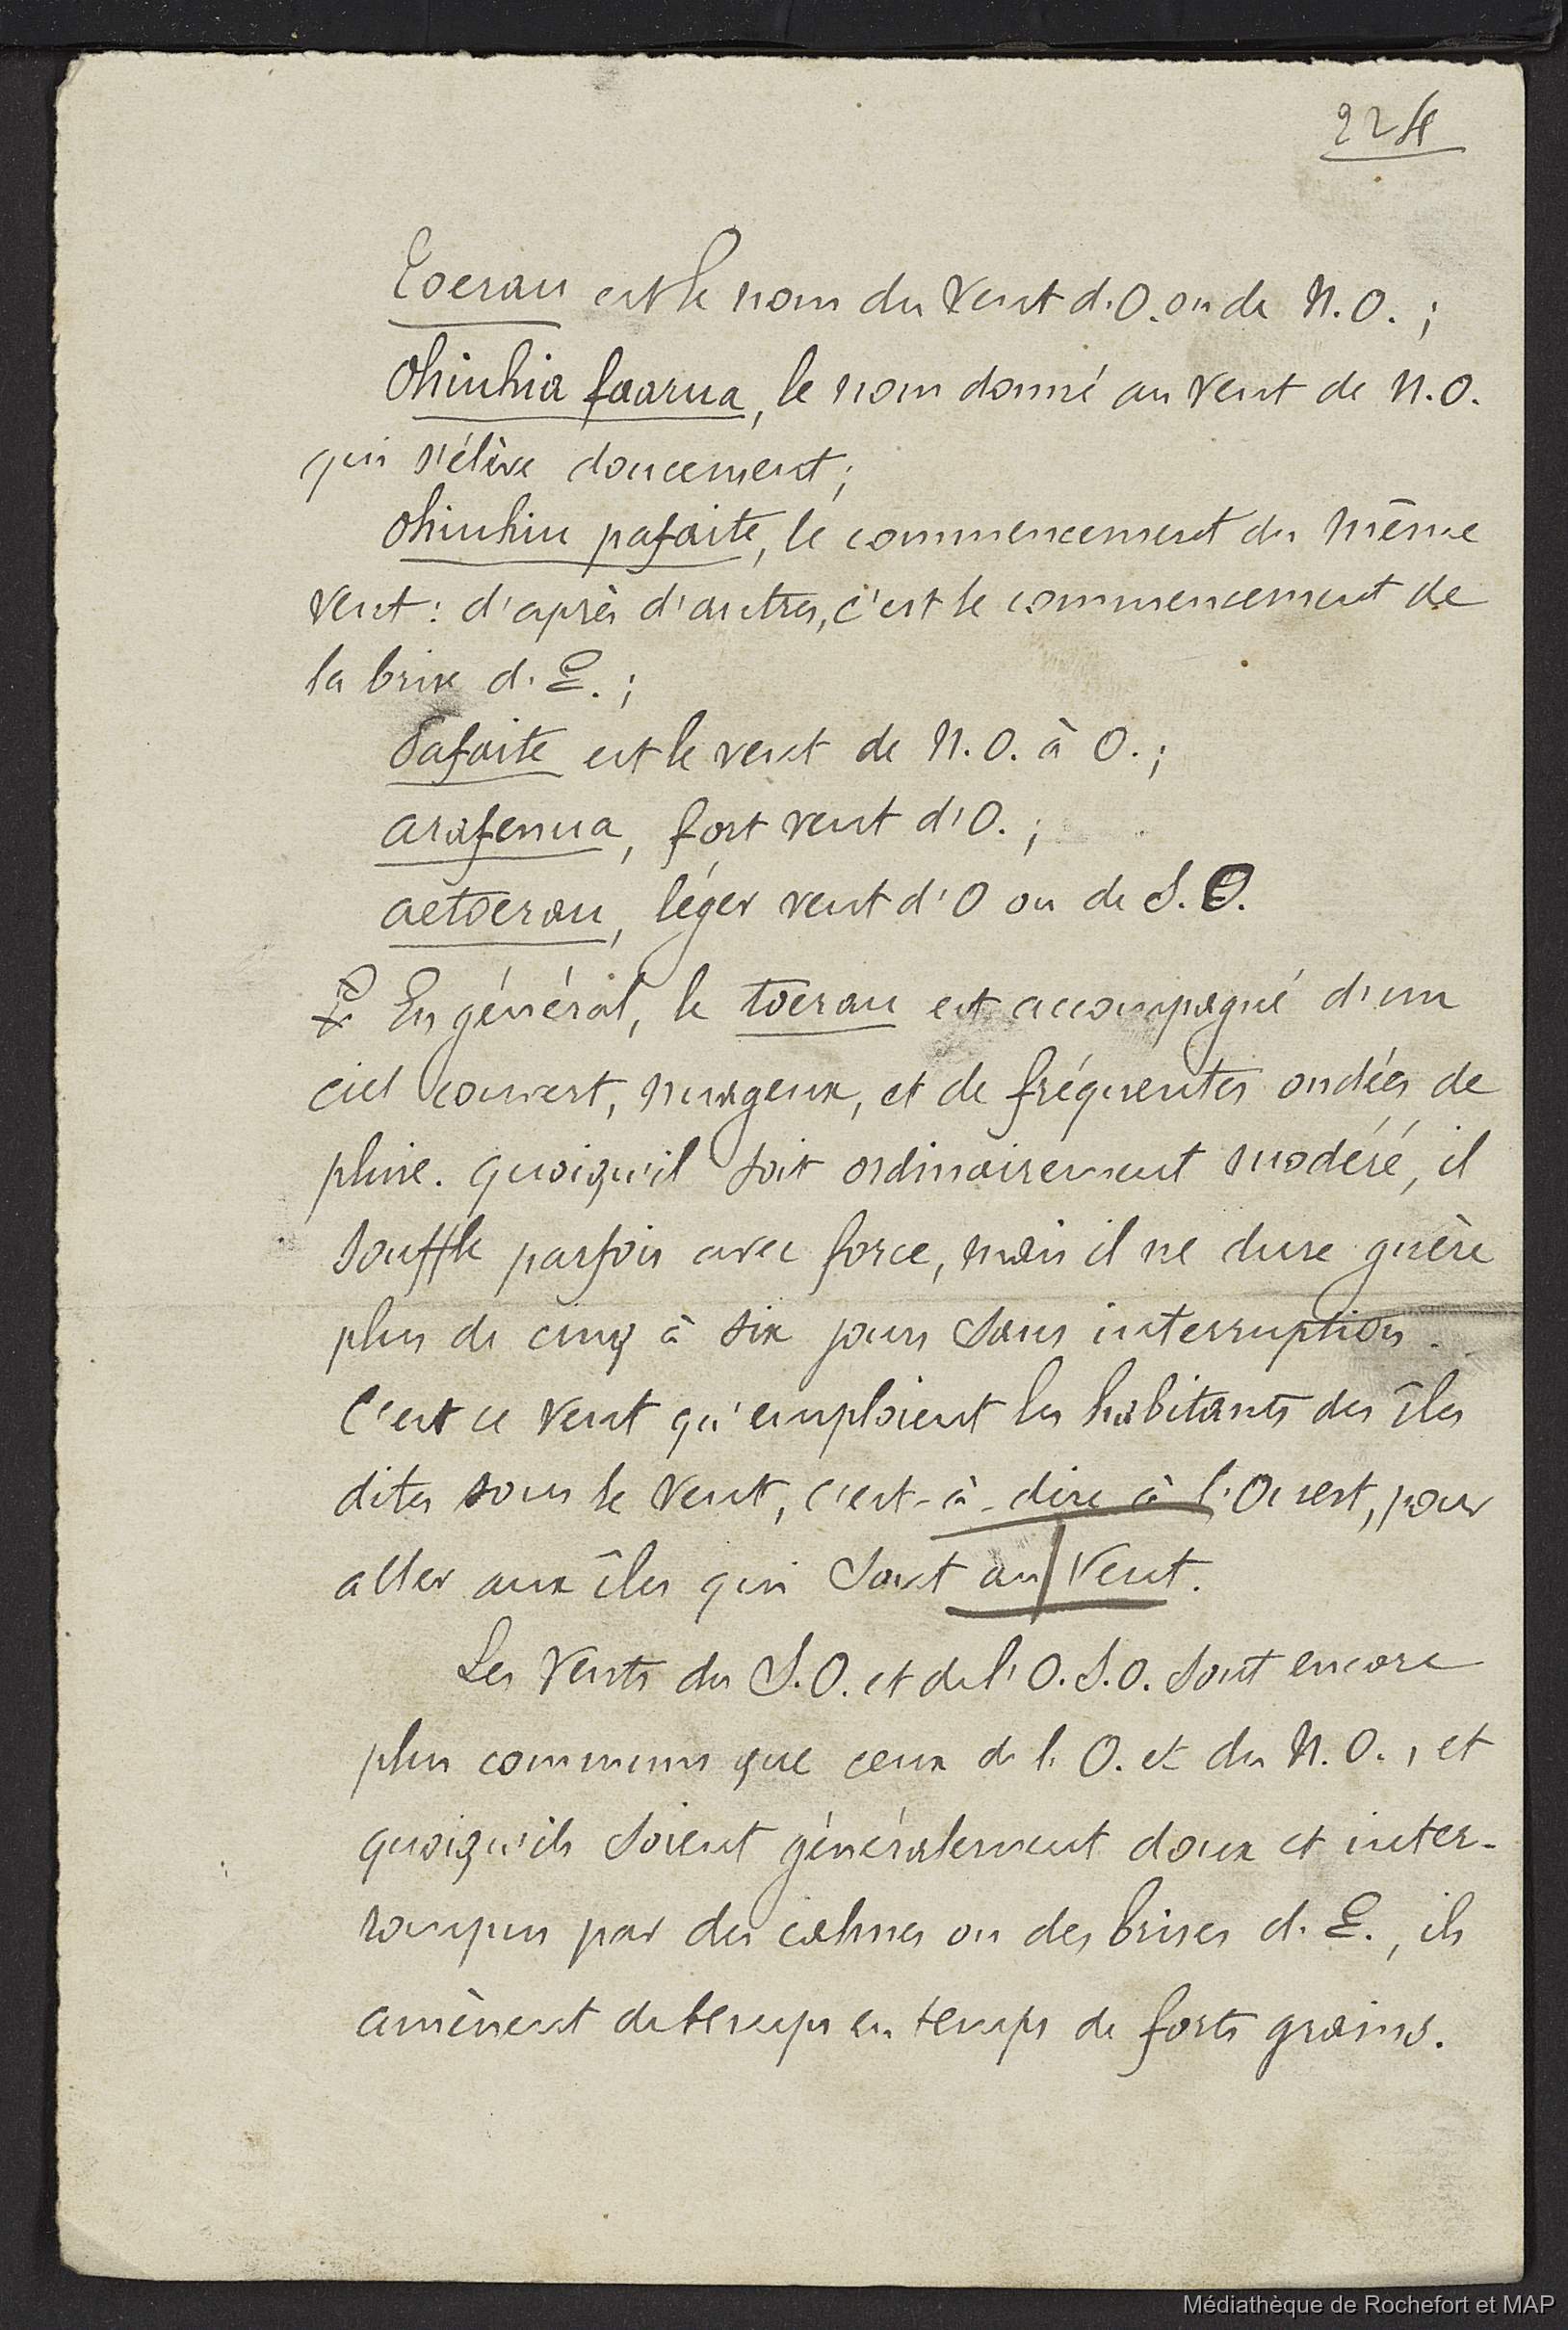 224
Toerau est le nom du vent d'O. ou de N.O. ;
Ohiuhia faarua, le nom donné au vent de N.O.
qui s'élève doucement ;
Ohiuhiu pafaite, le commencement du même
vent : d'après d'autres, c'est le commencement de
la brise d'E. ;
Pafaite est le vent de N.O. à O. ;
arafenua, fort vent d'O. ;
aetoerau, léger vent d'O ou de S.O.
En général, le toerau est accompagné d'un
ciel couvert, nuageux, et de fréquentes ondées de
pluie. quoiqu'il soit ordinairement modéré, il
souffle parfois avec force, mais il ne dure guère
plus de cinq à six jours sans interruption.
C'est ce vent qu'emploient les habitants des îles
dites sous le vent, c'est-à-dire à l'Ouest, pour
aller aux îles qui sont au vent.
Les vents du S.O. et de l'O.S.O. sont encore
plus communs que ceux de l'O. et du N.O., et
quoiqu'ils soient généralement doux et inter-
rompus par des calmes ou des brises d'E., ils
amènent de temps en temps de forts grains.
Médiathèque de Rochefort et MAP